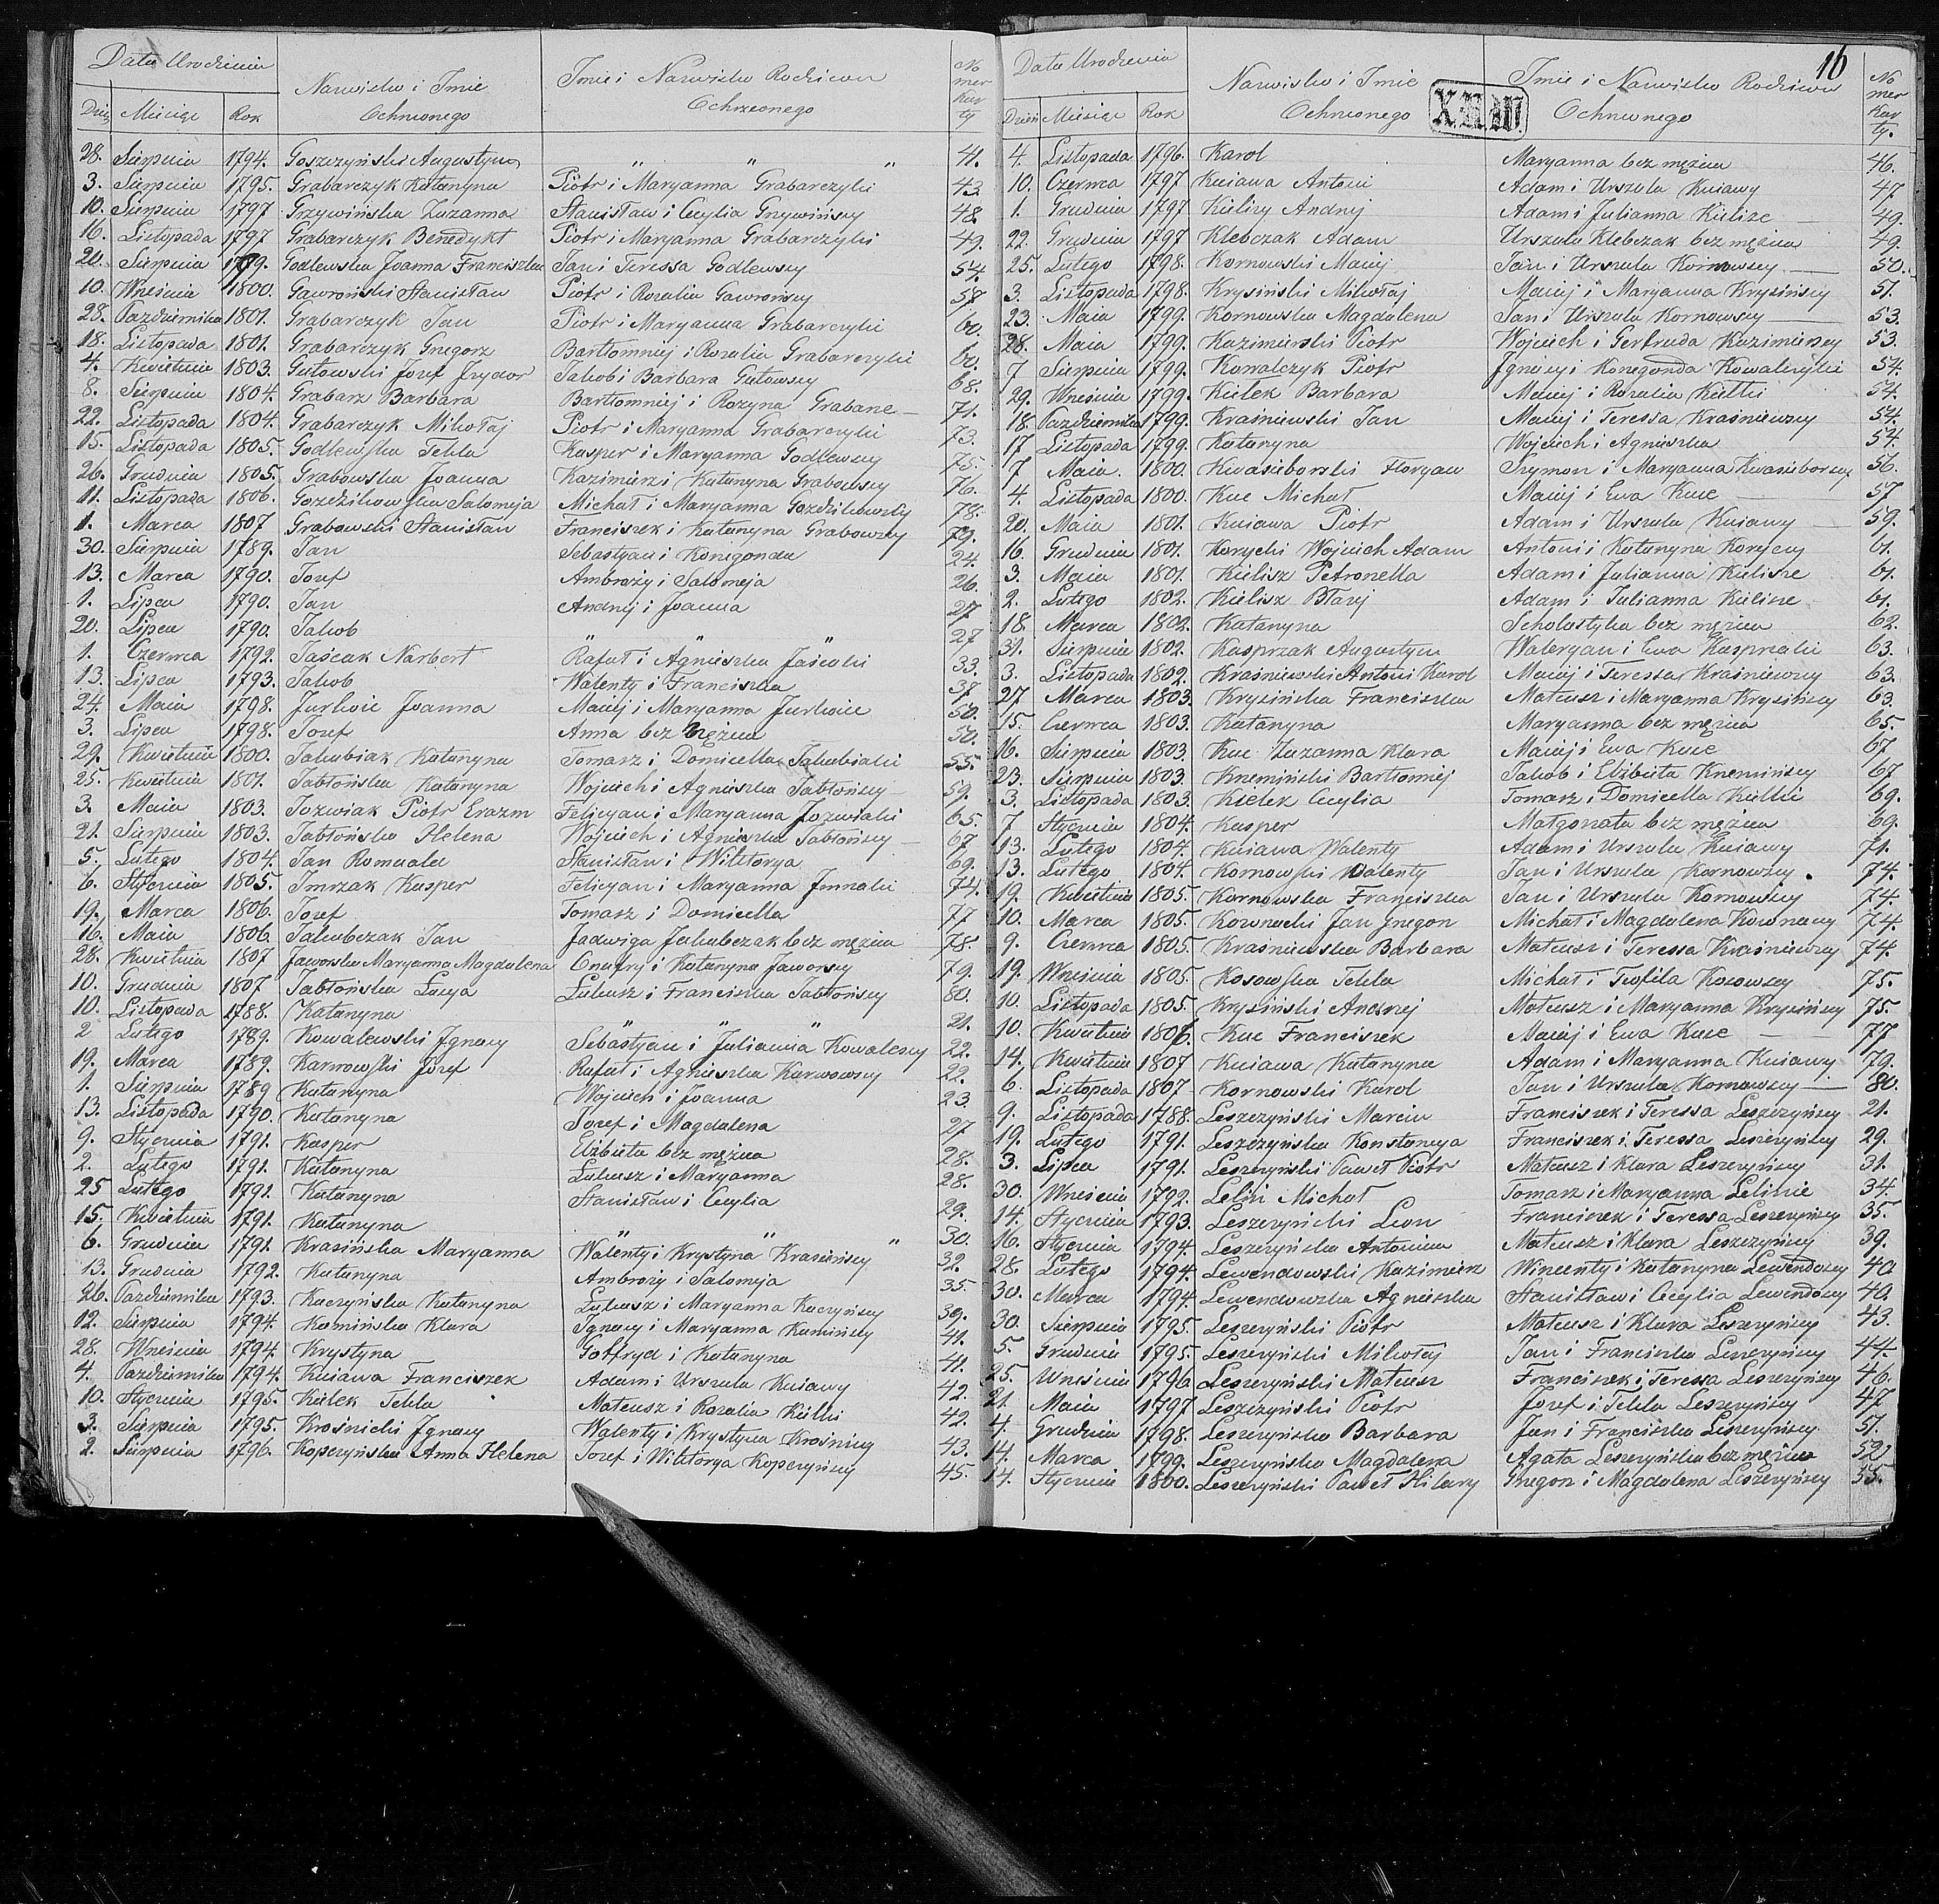 Data Urodzenia
Nazwisko i Imie Ochrzconego
Imie i Nazwisko Rodziców Ochrzconego
Nomer Karty
Dzień Miesiąc Rok
28. Sierpnia 1794. Goszczyński Augustyn " " " 41.
3. Sierpnia 1795. Grabarczyk Katarzyna Piotr i Maryanna Grabarczyki 43.
10. Sierpnia 1797 Grzywińska Zuzanna Stanisław i Cecylia Grzywińscy 48.
16. Listopada 1797 Grabarczyk Benedykt Piotr i Maryanna Grabarczyki 49.
20. Sierpnia 1799. Godlewska Joanna Franciszka Jan i Teressa Godlewscy 54.
10. Wrześnie 1800. Gawroński Stanisław Piotr i Rozalia Gawrońscy 58
28. Pazdziernika 1801. Grabarczyk Jan Piotr i Maryanna Grabarczyki 60.
18. Listopada 1801. Grabarczyk Grzegorz Bartłomiiej i Rozalia Grabarczyki 60.
4. Kwietnia 1803. Gutowski Jozef Jzydor Jakob i Barbara Gutowscy 68.
8. Sierpnia 1804. Grabarz Barbara Bartłomniej i Rozyna Grabarze 71.
22. Listopada 1804. Grabarczyk Mikołaj Piotr i Maryanna Grabarczyki 73.
15. Listopada 1805. Godlewska Tekla Kasper i Maryanna Godlewscy 75.
26. Grudnia 1805. Grabowska Joanna Kazimierz i Katarzyna Grabowscy 76.
11. Listopada 1806. Gozdzikowska Salomeja Michał i Maryanna Gozdzikowscy 78.
1. Marca 1807 Grabowski Stanisław Franciszek i Katarzyna Grabowscy 79.
30. Sierpnia 1789. Jan Sebastyan i Konegonda 24.
13. Marca 1790. Jozef Ambroży i Salomeja 26.
1. Lipca 1790. Jan Andrzej i Joanna 27
20. Lipca 1790. Jakob " " " 27
1. Czerwca 1792. Jaścak Narbert Rafał i Agnieszka Jaścaki 33.
13. Lipca 1793. Jakob Walenty i Franciszka 37.
24. Maia 1798. Jurkwic Joanna Maciej i Maryanna Jurkwice 50.
3. Lipca 1798. Jozef Anna bez mężna 50.
29. Kwietnia 1800. Jakubiak Katarzyna Tomasz i Domicella Jakubiaki 55.
25. Kwietnia 1801. Jabłońska Katarzyna Wojciech i Agnieszka Jabłońscy 59.
3. Maia 1803. Jozwiak Piotr Erazm Felicyan i Maryanna Jozwiaki 65.
21. Sierpnia 1803. Jabłońska Helena Wojciech i Agnieszka Jabłońscy 67
5. Lutego 1804. Jan Romuald Stanisław i Wiktorya 69.
6. Stycznia 1805. Jmrzak Kasper Felicyan i Maryanna Jmrzaki 74.
19. Marca 1806. Jozef Tomasz i Domicella 77
16. Maia 1806. Jakubczak Jan Jadwiga Jakubczak bez mężna 78.
28. Kwietnia 1807 Jaworska Maryanna Magdalena Onufry i Katarzyna Jaworscy 79.
10. Grudnia 1807 Jabłońska Łucya Łukasz i Franciszka Jabłońscy 80.
10. Listopada 1788. Katarzyna " " " 21.
2 Lutego 1789. Kowalewski Jgnacy Sebastyan i Julianna Kowalescy 22.
19. Marca 1789. Karwowski Jozef Rafał i Agnieszka Karwowscy 22.
1. Sierpnia 1789 Katarzyna Wojciech i Joanna 23.
13. Listopada 1790. Katarzyna Jozef i Magdalena 27
9. Stycznia 1791. Kasper Elżbieta bez mężna 28.
2. Lutego 1791. Katarzyna Łukasz i Maryanna 28.
25 Lutego 1791. Katarzyna Stanisław i Cecylia 29.
15. Kwietnia 1791. Katarzyna " " " 30.
6. Grudnia 1791. Krasińska Maryanna Walenty i Krystyna Krasińscy 32.
13. Grudnia 1792. Katarzyna Ambroży i Salomeja 35.
26. Pazdziernika 1793. Kaczyńska Katarzyna Łukasz i Maryanna Kaczyńscy 39.
12. Sierpnia 1794. Kamińska Klara Jgnacy i Maryanna Kamińscy 41.
28. Wrześnie 1794. Krystyna Gotfryd i Katarzyna 41.
4. Pazdziernika 1794. Kuiawa Franciszek Adam i Urszula Kuiawy 42.
10. Stycznia 1795. Kiełek Tekla Mateusz i Rozalia Kiełki 42.
3. Sierpnia 1795. Krośnicki Jgnacy Walenty i Krystyna Krośniccy 43.
2. Sierpnia 1796. Koperzyńska Anna Helena Jozef i Wiktorya Koperzyńscy 45.
16
Data Urodzenia
Nazwisko i Imie Ochrzconego
Imie i Nazwisko Rodziców Ochrzconego
Nomer Karty.
Dzień Miesiąc Rok
4. Listopada 1796. Karol Maryanna bez mężna 46.
10. Czerwca 1797 Kuiawa Antoni Adam i Urszula Kuiawy 47
1. Grudnia 1797 Kielizy Andrzej Adam i Julianna Kielize 49.
22. Grudnia 1797 Klebczak Adam Urszula Klebczak bez mężna 49.
25. Lutego 1798. Kornowski Maciej Jan i Urszula Kornowscy 50.
3. Listopada 1798. Krysiński Mikołaj Maciej i Maryanna Krysińscy 51.
23. Maia 1799. Kornowska Magdalena Jan i Urszula Kornowscy 53.
28. Maia 1799. Kazimierski Piotr Wojciech i Gertruda Kazimierscy 53.
7 Sierpnia 1799. Kowalczyk Piotr Jgnacy i Konegonda Kowalczyki 54.
29. Wrześnie 1799. Kiełek Barbara Maciej i Rozalia Kiełki 54.
18 Pazdziernika 1799. Kraśniewski Jan Maciej i Teressa Kraśniewscy 54.
17 Listopada 1799. Katarzyna Wojciech i Agnieszka 54.
7 Maia. 1800. Kwasieborski Floryan Szymon i Maryanna Kwasieborscy 56.
4. Listopada 1800. Kuc Michał Maciej i Ewa Kuce 57
20. Maia 1801. Kuiawa Piotr Adam i Urszula Kuiawy 59.
16. Grudnia 1801. Korycki Wojciech Adam Antoni i Katarzyna Koryccy 61.
3. Maia 1801. Kielisz Petronella Adam i Julianna Kielisze 61.
2. Lutego 1802. Kielisz Błazej Adam i Julianna Kielisze 61.
18 Marca 1802. Katarzyna Scholastyka bez mężna 62.
31. Sierpnia 1802. Kasprzak Augustyn Waleryan i Ewa Kasprzaki 63.
3. Listopada 1802. Kraśniewski Antoni Karol Maciej i Teressa Kraśniewscy 63.
27 Marca 1803. Krysińska Franciszka Mateusz i Maryanna Krysińscy 63.
15. Czerwca 1803. Katarzyna Maryanna bez mężna 65.
16. Sierpnia 1803. Kuc Zuzanna Klara Maciej i Ewa Kuce 67
23. Sierpnia 1803. Krzemiński Bartłomiej Jakob i Elżbieta Krzemińscy 67
3. Listopada 1803. Kiełek Cecylia Tomasz i Domicella Kiełki 69.
7 Stycznia 1804. Kasper Małgorzata bez mężna 69.
13. Lutego 1804. Kuiawa Walenty Adam i Urszula Kuiawy 71.
13. Lutego 1804. Kornowski Walenty Jan i Urszula Kornowscy. 74.
19. Kwietnia 1805. Kornowska Franciszka Jan i Urszula Kornowscy 74.
10. Marca 1805. Kownacki Jan Grzegorz Michał i Magdalena Kownaccy 74.
9. Czerwca 1805. Kraśniewska Barbara Mateusz i Teressa Kraśniewscy 74.
19. Wrześnie 1805. Kosowska Tekla Michał i Teofila Kosowscy 75.
10. Listopada 1805. Krysiński Andrzej Mateusz i Maryanna Krysińscy 75.
10. Kwietnia 1806. Kuc Franciszek Maciej i Ewa Kuce 77
14. Kwietnia 1807 Kuiawa Katarzyna Adam i Maryanna Kuiawy 79.
6. Listopada 1807 Kornowski Karol Jan i Urszula Kornowscy 80.
9. Listopada 1788. Leszczyński Marcin Franciszek i Teressa Leszczyńscy 21.
19. Lutego 1791. Leszczyńska Konstancya Franciszek i Teressa Leszczyńscy 29.
3. Lipca 1791. Leszczyński Paweł Piotr Mateusz i Klara Leszczyńscy 31.
30. Wrześnie 1792. Lelin Michał Tomasz i Maryanna Lelinie 34.
14. Stycznia 1793. Leszczyński Leon Franciszek i Teressa Leszczyńscy 35.
16. Stycznia 1794. Leszczyńska Antonina Mateusz i Klara Leszczyńscy 39.
28. Lutego 1794. Lewendowski Kazimierz Wincenty i Katarzyna Lewendoscy 40
30. Marca 1794. Lewendowska Agnieszka Stanisław i Cecylia Lewendoscy 40.
30. Sierpnia 1795. Leszczyński Piotr Mateusz i Klara Leszczyńscy 43.
5. Grudnia 1795. Leszczyński Mikołaj Jan i Franciszka Leszczyńscy 44.
25. Wrześnie 1796. Leszczyński Mateusz Franciszek i Teressa Leszczyńscy 46.
21. Maia 1797 Leszczyński Piotr Jozef i Tekla Leszczyńscy 47
4. Grudnia 1798. Leszczyńska Barbara Jan i Franciszka Leszczyńscy 51.
14. Marca 1799. Leszczyńska Magdalena Agata Leszczyńska bez mężna 52
14. Stycznia 1800. Leszczyński Paweł Hilary Grzegorz i Magdalena Leszczyńscy 55.